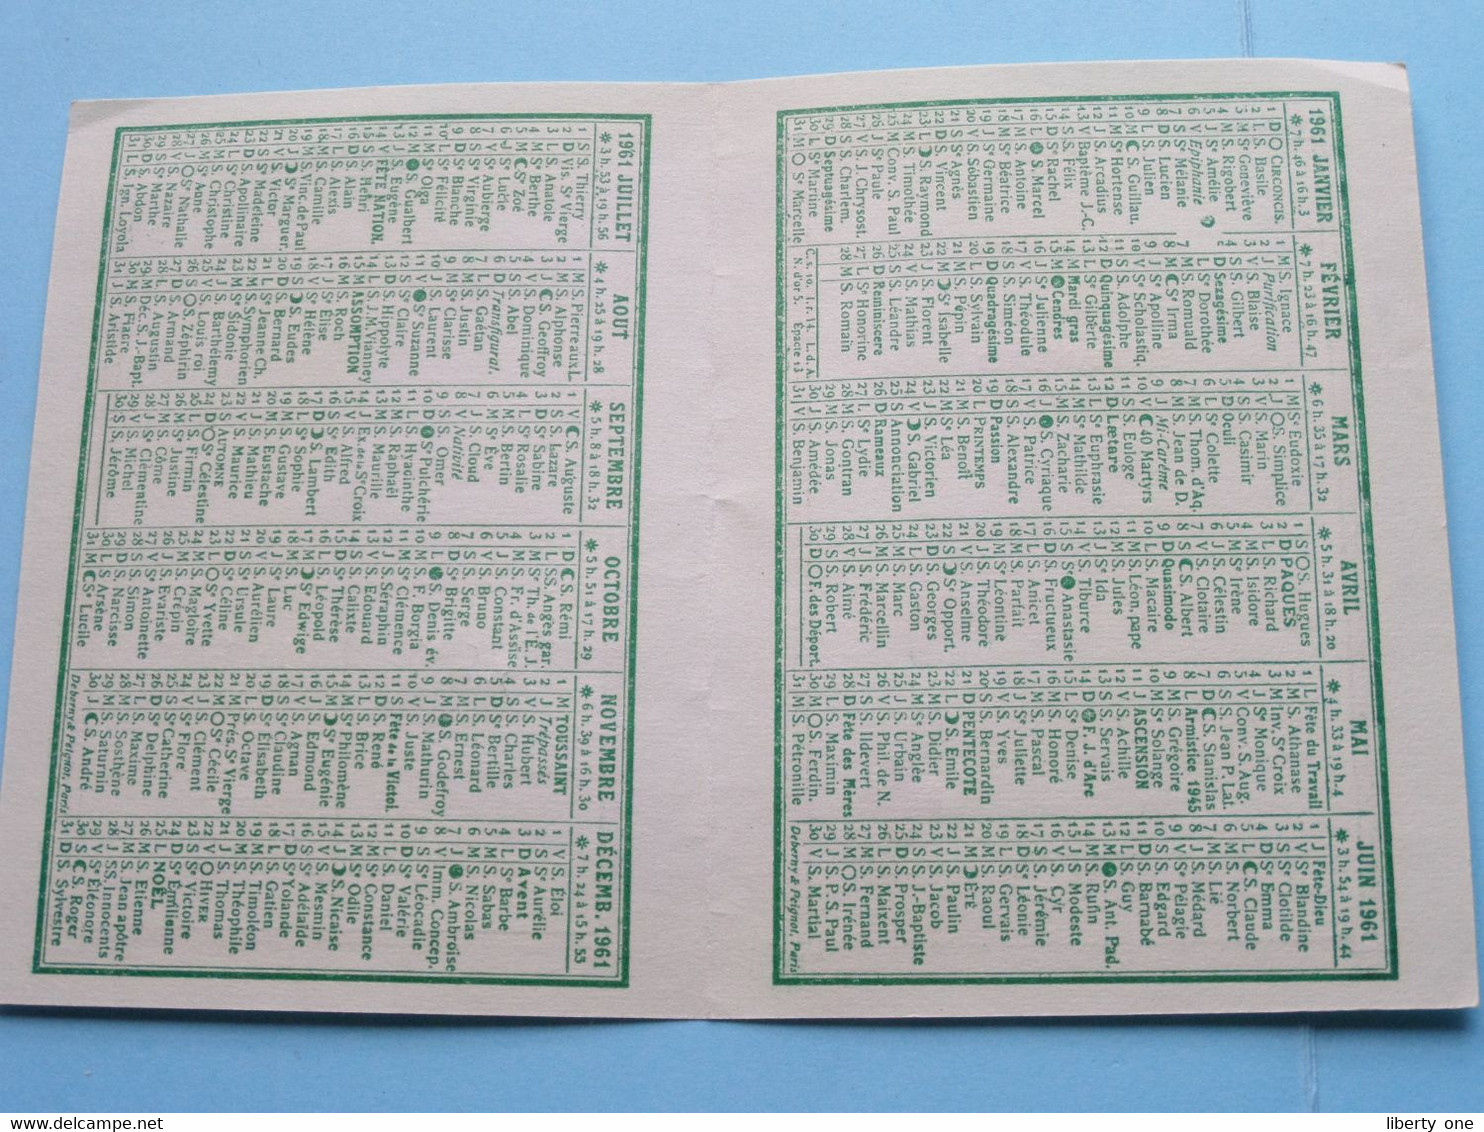 1961 JANVIER
☀ 7 h. 46 à 16 h. 3
1 D CIRCONCIS.
2 L S. Basile
3 M Sᵉ Geneviève
4 M S. Rigobert
5 J Sᵉ Amélie
6 V Epiphanie
7 S Sᵉ Mélanie
8 D S. Lucien
9 L S. Julien
10 M ☾ S. Guillau.
11 M Sᵉ Hortense
12 J S. Arcadius
13 V Baptême J.-C.
14 S S. Félix
15 D Sᵉ Rachel
16 L ● S. Marcel
17 M S. Antoine
18 M Sᵉ Béatrice
19 J Sᵉ Germaine
20 V S. Sébastien
21 S Sᵉ Agnès
22 D S. Vincent
23 L ☽ S. Raymond
24 M S. Timothée
25 M Conv. S. Paul
26 J Sᵉ Paule
27 V S. J Chrysost.
28 S S. Charlem.
29 D Septuagésime
30 L Sᵉ Martine
31 M ○ Sᵉ Marcelle
FÉVRIER
☀ 7 h. 23 à 16 h. 47
1 M S. Ignace
2 J Purification
3 V S. Blaise
4 S S. Gilbert
5 D Sexagésime
6 L Sᵉ Dorothée
7 M S. Romuald
8 M ☾ Sᵉ Irma
9 J Sᵉ Apolline
10 V Sᵉ Scholastiq.
11 S S. Adolphe
12 D Quinquagésime
13 L Sᵉ Gilberte
14 M Mardi gras
15 M ● Cendres
16 J Sᵉ Julienne
17 V S. Théodule
18 S S. Siméon
19 D Quadragésime
20 L S. Sylvain
21 M S. Pépin
22 M ☽ Sᵉ Isabelle
23 J S. Florent
24 V S. Mathias
25 S S. Léandre
26 D Reminiscere
27 L Sᵉ Honorine
28 M S. Romain
C.s. 10. I.r. 14. L. d. A.
N. d'or 5. Epacte 13
MARS
☀ 6 h. 35 à 17 h. 32
1 M Sᵉ Eudoxie
2 J ○ S. Simplice
3 V S. Marin
4 S S. Casimir
5 D Oculi
6 L Sᵉ Colette
7 M S. Thom. d'Aq.
8 M S. Jean de D.
9 J Mi-Carême
10 V ☾ 40 Martyrs
11 S S. Euloge
12 D Lætare
13 L Sᵉ Euphrasie
14 M Sᵉ Mathilde
15 M S. Zacharie
16 J ● S. Cyriaque
17 V S. Patrice
18 S S. Alexandre
19 D Passion
20 L PRINTEMPS
21 M S. Benoît
22 M Sᵉ Léa
23 J S. Victorien
24 V ☽ S. Gabriel
25 S Annonciation
26 D Rameaux
27 L Sᵉ Lydie
28 M S. Gontran
29 M S. Jonas
30 J S. Amédée
31 V S. Benjamin
AVRIL
☀ 5 h. 31 à 18 h. 20
1 S ○ S. Hugues
2 D PAQUES
3 L S. Richard
4 M S. Isidore
5 M Sᵉ Irène
6 J S. Célestin
7 V S. Clotaire
8 S ☾ S. Albert
9 D Quasimodo
10 L S. Macaire
11 M S. Léon, pape
12 M S. Jules
13 J Sᵉ Ida
14 V S. Tiburce
15 S Sᵉ ● Anastasie
16 D S. Fructueux
17 L S. Anicet
18 M S. Parfait
19 M Sᵉ Léontine
20 J S. Théodore
21 V S. Anselme
22 S ☽ Sᵉ Opport.
23 D S. Georges
24 L S. Gaston
25 M S. Marc
26 M S. Marcellin
27 J S. Frédéric
28 V S. Aimé
29 S S. Robert
30 D ○ F. des Déport.
MAI
☀ 4 h. 33 à 19 h. 4
1 L Fête du Travail
2 M S. Athanase
3 M Inv. Sᵉ Croix
4 J Sᵉ Monique
5 V Conv. S. Aug.
6 S S. Jean P. Lat.
7 D ☾ S. Stanislas
8 L Armistice 1945
9 M S. Grégoire
10 M Sᵉ Solange
11 J ASCENSION
12 V S. Achille
13 S S. Servais
14 D ● F. J. d'Arc
15 L Sᵉ Denise
16 M S. Honoré
17 M S. Pascal
18 J Sᵉ Juliette
19 V S. Yves
20 S S. Bernardin
21 D PENTECOTE
22 L ☽ S. Emile
23 M S. Didier
24 M Sᵉ Angèle
25 J S. Urbain
26 V S. Phil. de N.
27 S S. Ildevert
28 D Fête des Mères
29 L S. Maximin
30 M ○ S. Ferdin.
31 M Sᵉ Pétronille
JUIN 1961
☀ 3 h. 54 à 19 h. 44
1 J Fête-Dieu
2 V Sᵉ Blandine
3 S Sᵉ Clotilde
4 D Sᵉ Emma
5 L ☾ S. Claude
6 M S. Norbert
7 M S. Lié
8 J S. Médard
9 V Sᵉ Pélagie
10 S S. Edgard
11 D S. Barnabé
12 L S. Guy
13 M ● S. Ant. Pad.
14 M S. Rufin
15 J S. Modeste
16 V S. Cyr
17 S S. Jérémie
18 D Sᵉ Léonie
19 L S. Gervais
20 M S. Raoul
21 M ☽ ÉTÉ
22 J S. Paulin
23 V S. Jacob
24 S S. J.-Baptiste
25 D S. Prosper
26 L S. Maixent
27 M S. Fernand
28 M ○ S. Irénée
29 J SS. P. S. Paul
30 V S. Martial
Deberny & Peignot, Paris
1961 JUILLET
☀ 3 h. 53 à 19 h. 56
1 S S. Thierry
2 D Vis. Sᵉ Vierge
3 L S. Anatole
4 M Sᵉ Berthe
5 M ☾ Sᵉ Zoé
6 J Sᵉ Lucie
7 V Sᵉ Aubierge
8 S Sᵉ Virginie
9 D Sᵉ Blanche
10 L Sᵉ Félicité
11 M Sᵉ Olga
12 M ● S. Gualbert
13 J S. Eugène
14 V FÊTE NATION.
15 S S. Henri
16 D S. Alain
17 L S. Alexis
18 M S. Camille
19 M S. Vinc. de Paul
20 J ☽ Sᵉ Marguer.
21 V S. Victor
22 S Sᵉ Madeleine
23 D S. Apollinaire
24 L Sᵉ Christine
25 M S. Christophe
26 M Sᵉ Anne
27 J ○ Sᵉ Nathalie
28 V S. Nazaire
29 S Sᵉ Marthe
30 D S. Abdon
31 L S. Ign. Loyol.
AOUT
☀ 4 h. 25 à 19 h. 28
1 M S. Pierre aux L.
2 M S. Alphonse
3 J ☾ S. Geoffroy
4 V S. Dominique
5 S S. Abel
6 D Transfigurat.
7 L S. Gaëtan
8 M S. Justin
9 M Sᵉ Clarisse
10 J S. Laurent
11 V ● Sᵉ Suzanne
12 S Sᵉ Claire
13 D S. Hippolyte
14 L S. J. M. Vianney
15 M ASSOMPTION
16 M S. Roch
17 J S. Elise
18 V Sᵉ Hélène
19 S ☽ S. Eudes
20 D S. Bernard
21 L Sᵉ Jeanne Ch.
22 M S. Symphorien
23 M S. Sidonie
24 J S. Barthélemy
25 V S. Louis roi
26 S ○ S. Zéphirin
27 D S. Armand
28 L S. Augustin
29 M Déc. S. J.-Bapt.
30 M S. Fiacre
31 J S. Aristide
SEPTEMBRE
☀ 5 h. 8 à 18 h. 32
1 V ☾ S. Auguste
2 S S. Lazare
3 D Sᵉ Sabine
4 L Sᵉ Rosalie
5 M S. Bertin
6 M Sᵉ Ève
7 J S. Cloud
8 V Nativité
9 S S. Omer
10 D ● Sᵉ Pulchérie
11 L S. Hyacinthe
12 M S. Raphaël
13 M S. Maurille
14 J Ex. de la Sᵉ Croix
15 V S. Alfred
16 S Sᵉ Edith
17 D ☽ S. Lambert
18 L Sᵉ Sophie
19 M S. Gustave
20 M S. Eustache
21 J S. Mathieu
22 V S. Maurice
23 S AUTOMNE
24 D ○ Sᵉ Célestine
25 L S. Firmin
26 M Sᵉ Justine
27 M S. Côme
28 J Sᵉ Clémentine
29 V S. Michel
30 S S. Jérôme
OCTOBRE
☀ 5 h. 51 à 17 h. 29
1 D ☾ S. Rémi
2 L SS. Anges gar.
3 M Sᵉ Th. de l'E. J.
4 M S. Fr. d'Assise
5 J S. Constant
6 V S. Bruno
7 S S. Serge
8 D Sᵉ Brigitte
9 L ● S. Denis év.
10 M S. F. Borgia
11 M Sᵉ Clémence
12 J S. Séraphin
13 V S. Edouard
14 S S. Calixte
15 D Sᵉ Thérèse
16 L S. Léopold
17 M ☽ Sᵉ Edwige
18 M S. Luc
19 J Sᵉ Laure
20 V S. Aurélien
21 S Sᵉ Ursule
22 D Sᵉ Céline
23 L ○ Sᵉ Yvette
24 M S. Magloire
25 M S. Crépin
26 J S. Evariste
27 V Sᵉ Antoinette
28 S S. Simon
29 D S. Narcisse
30 L S. Arsène
31 M ☾ Sᵉ Lucile
NOVEMBRE
☀ 6 h. 39 à 16 h. 30
1 M TOUSSAINT
2 J Trépassés
3 V S. Hubert
4 S S. Charles
5 D Sᵉ Bertille
6 L S. Léonard
7 M S. Ernest
8 M ● S. Godefroy
9 J S. Mathurin
10 V S. Juste
11 S Fête de la Victoi.
12 D S. René
13 L S. Brice
14 M Sᵉ Philomène
15 M ☽ Sᵉ Eugénie
16 J S. Edmond
17 V S. Agnan
18 S Sᵉ Claudine
19 D Sᵉ Elisabeth
20 L S. Octave
21 M Prés. Sᵉ Vierge
22 M ○ Sᵉ Cécile
23 J S. Clément
24 V Sᵉ Flore
25 S Sᵉ Catherine
26 D Sᵉ Delphine
27 L S. Maxime
28 M S. Sosthène
29 M S. Saturnin
30 J ☾ S. André
DÉCEMB. 1961
☀ 7 h. 24 à 15 h. 53
1 V S. Éloi
2 S Sᵉ Aurélie
3 D Avent
4 L Sᵉ Barbe
5 M S. Sabas
6 M S. Nicolas
7 J ● S. Ambroise
8 V Imm. Concep.
9 S Sᵉ Léocadie
10 D Sᵉ Valérie
11 L S. Daniel
12 M Sᵉ Constance
13 M Sᵉ Odile
14 J ☽ S. Nicaise
15 V S. Mesmin
16 S Sᵉ Adélaïde
17 D Sᵉ Yolande
18 L S. Gatien
19 M S. Timoléon
20 M S. Théophile
21 J S. Thomas
22 V ○ HIVER
23 S Sᵉ Victoire
24 D Sᵉ Emilienne
25 L NOËL
26 M S. Etienne
27 M S. Jean apôtre
28 J SS. Innocents
29 V Sᵉ Eléonore
30 S ☾ S. Roger
31 D S. Sylvestre
Deberny & Peignot, Paris
delcampe.net
liberty one